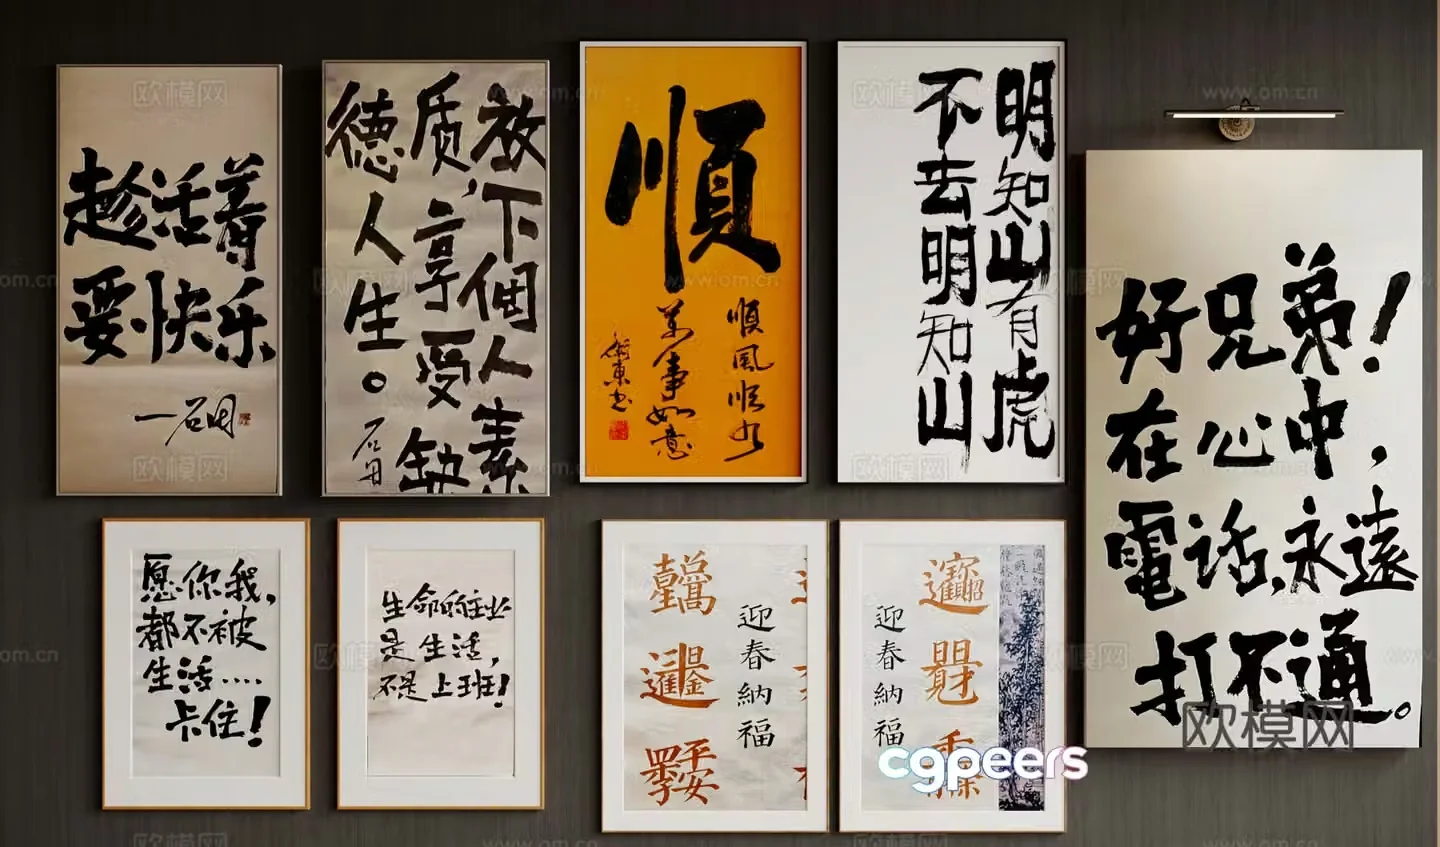 趁活着
要快乐
放下個人素
质，享受缺
德人生。
順
順風順水
萬事如意
明知山有虎
不去明知山
好兄弟！
在心中，
電话，永遠
打不通。
愿你我，
都不被
生活····
卡住！
生命的业
是生活，
不是上班！
迎春納福
迎春納福
cgpeers
欧模网
www.om.cn